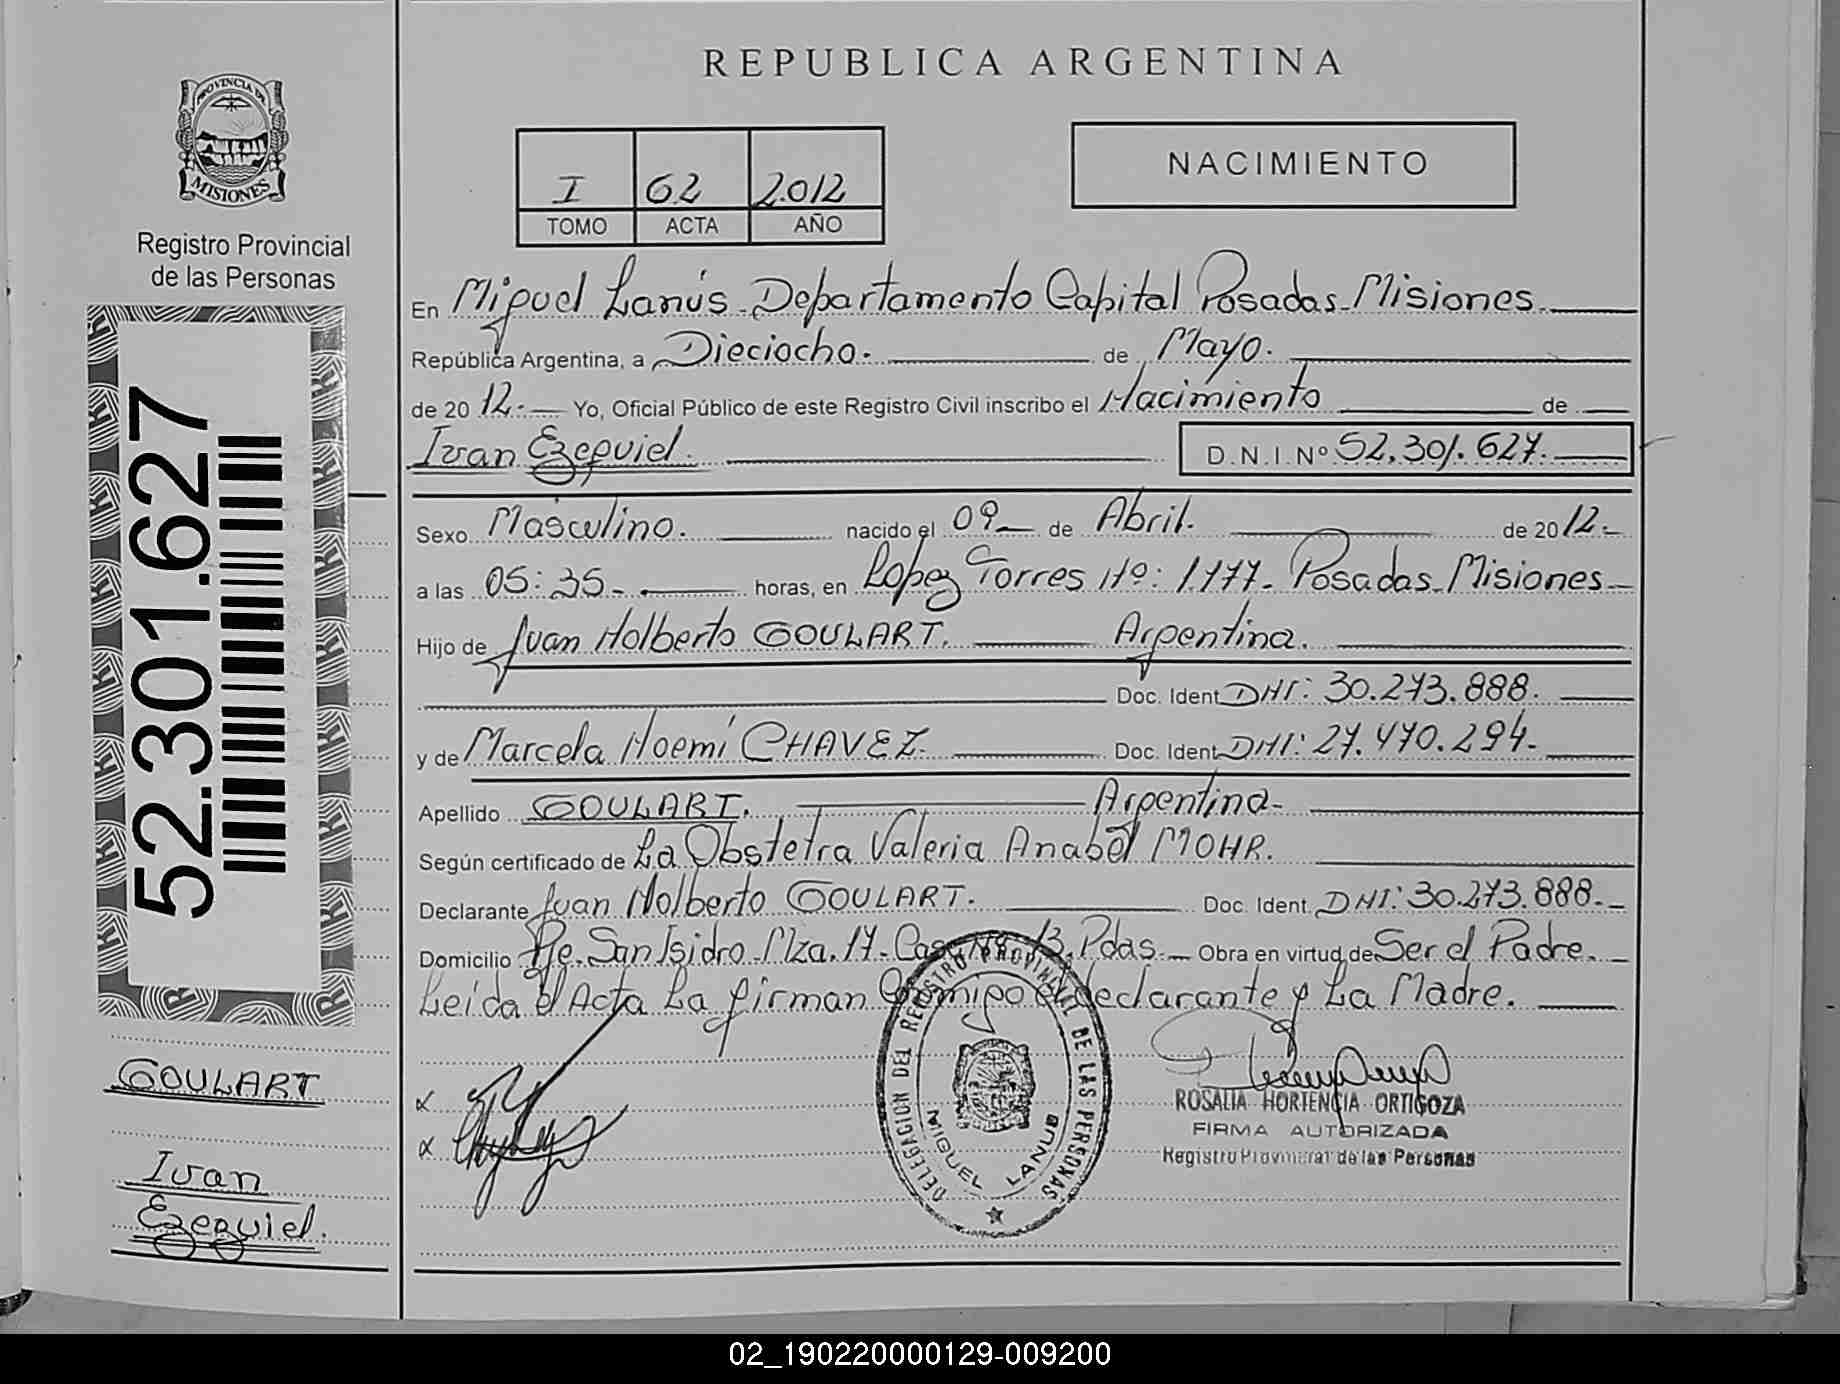 REPUBLICA ARGENTINA
PROVINCIA DE
MISIONES
Registro Provincial
de las Personas
I 62 2.012
TOMO ACTA AÑO
NACIMIENTO
En Miguel Lanús - Departamento Capital Posadas - Misiones
República Argentina, a Dieciocho. de Mayo.
de 20 12.- Yo, Oficial Público de este Registro Civil inscribo el Nacimiento de
Ivan Ezequiel. D.N.I. Nº 52.301.627.
52.301.627
Sexo Masculino. nacido el 09 de Abril. de 20 12.-
a las 05:35 - horas, en Lopez Torres Nº: 1.177 - Posadas - Misiones
Hijo de Juan Nolberto GOULART. Argentina.
Doc. Ident. DNI: 30.273.888.
y de Marcela Noemí CHAVEZ. Doc. Ident. DNI: 27.470.294.
Apellido GOULART. Argentina-
Según certificado de La Obstetra Valeria Anabel MOHR.
Declarante Juan Nolberto GOULART. Doc. Ident. DNI: 30.273.888.-
Domicilio Pje. San Isidro - Mza. 17 - Casa Nº 13. Pdas. Obra en virtud de Ser el Padre.
Leída el Acta La firman Conmigo el declarante y La Madre.
GOULART
Ivan
Ezequiel.
DELEGACION DEL REGISTRO PROVINCIAL DE LAS PERSONAS
MIGUEL LANUS
ROSALIA HORTENCIA ORTIGOZA
FIRMA AUTORIZADA
Registro Provincial de las Personas
02_190220000129-009200